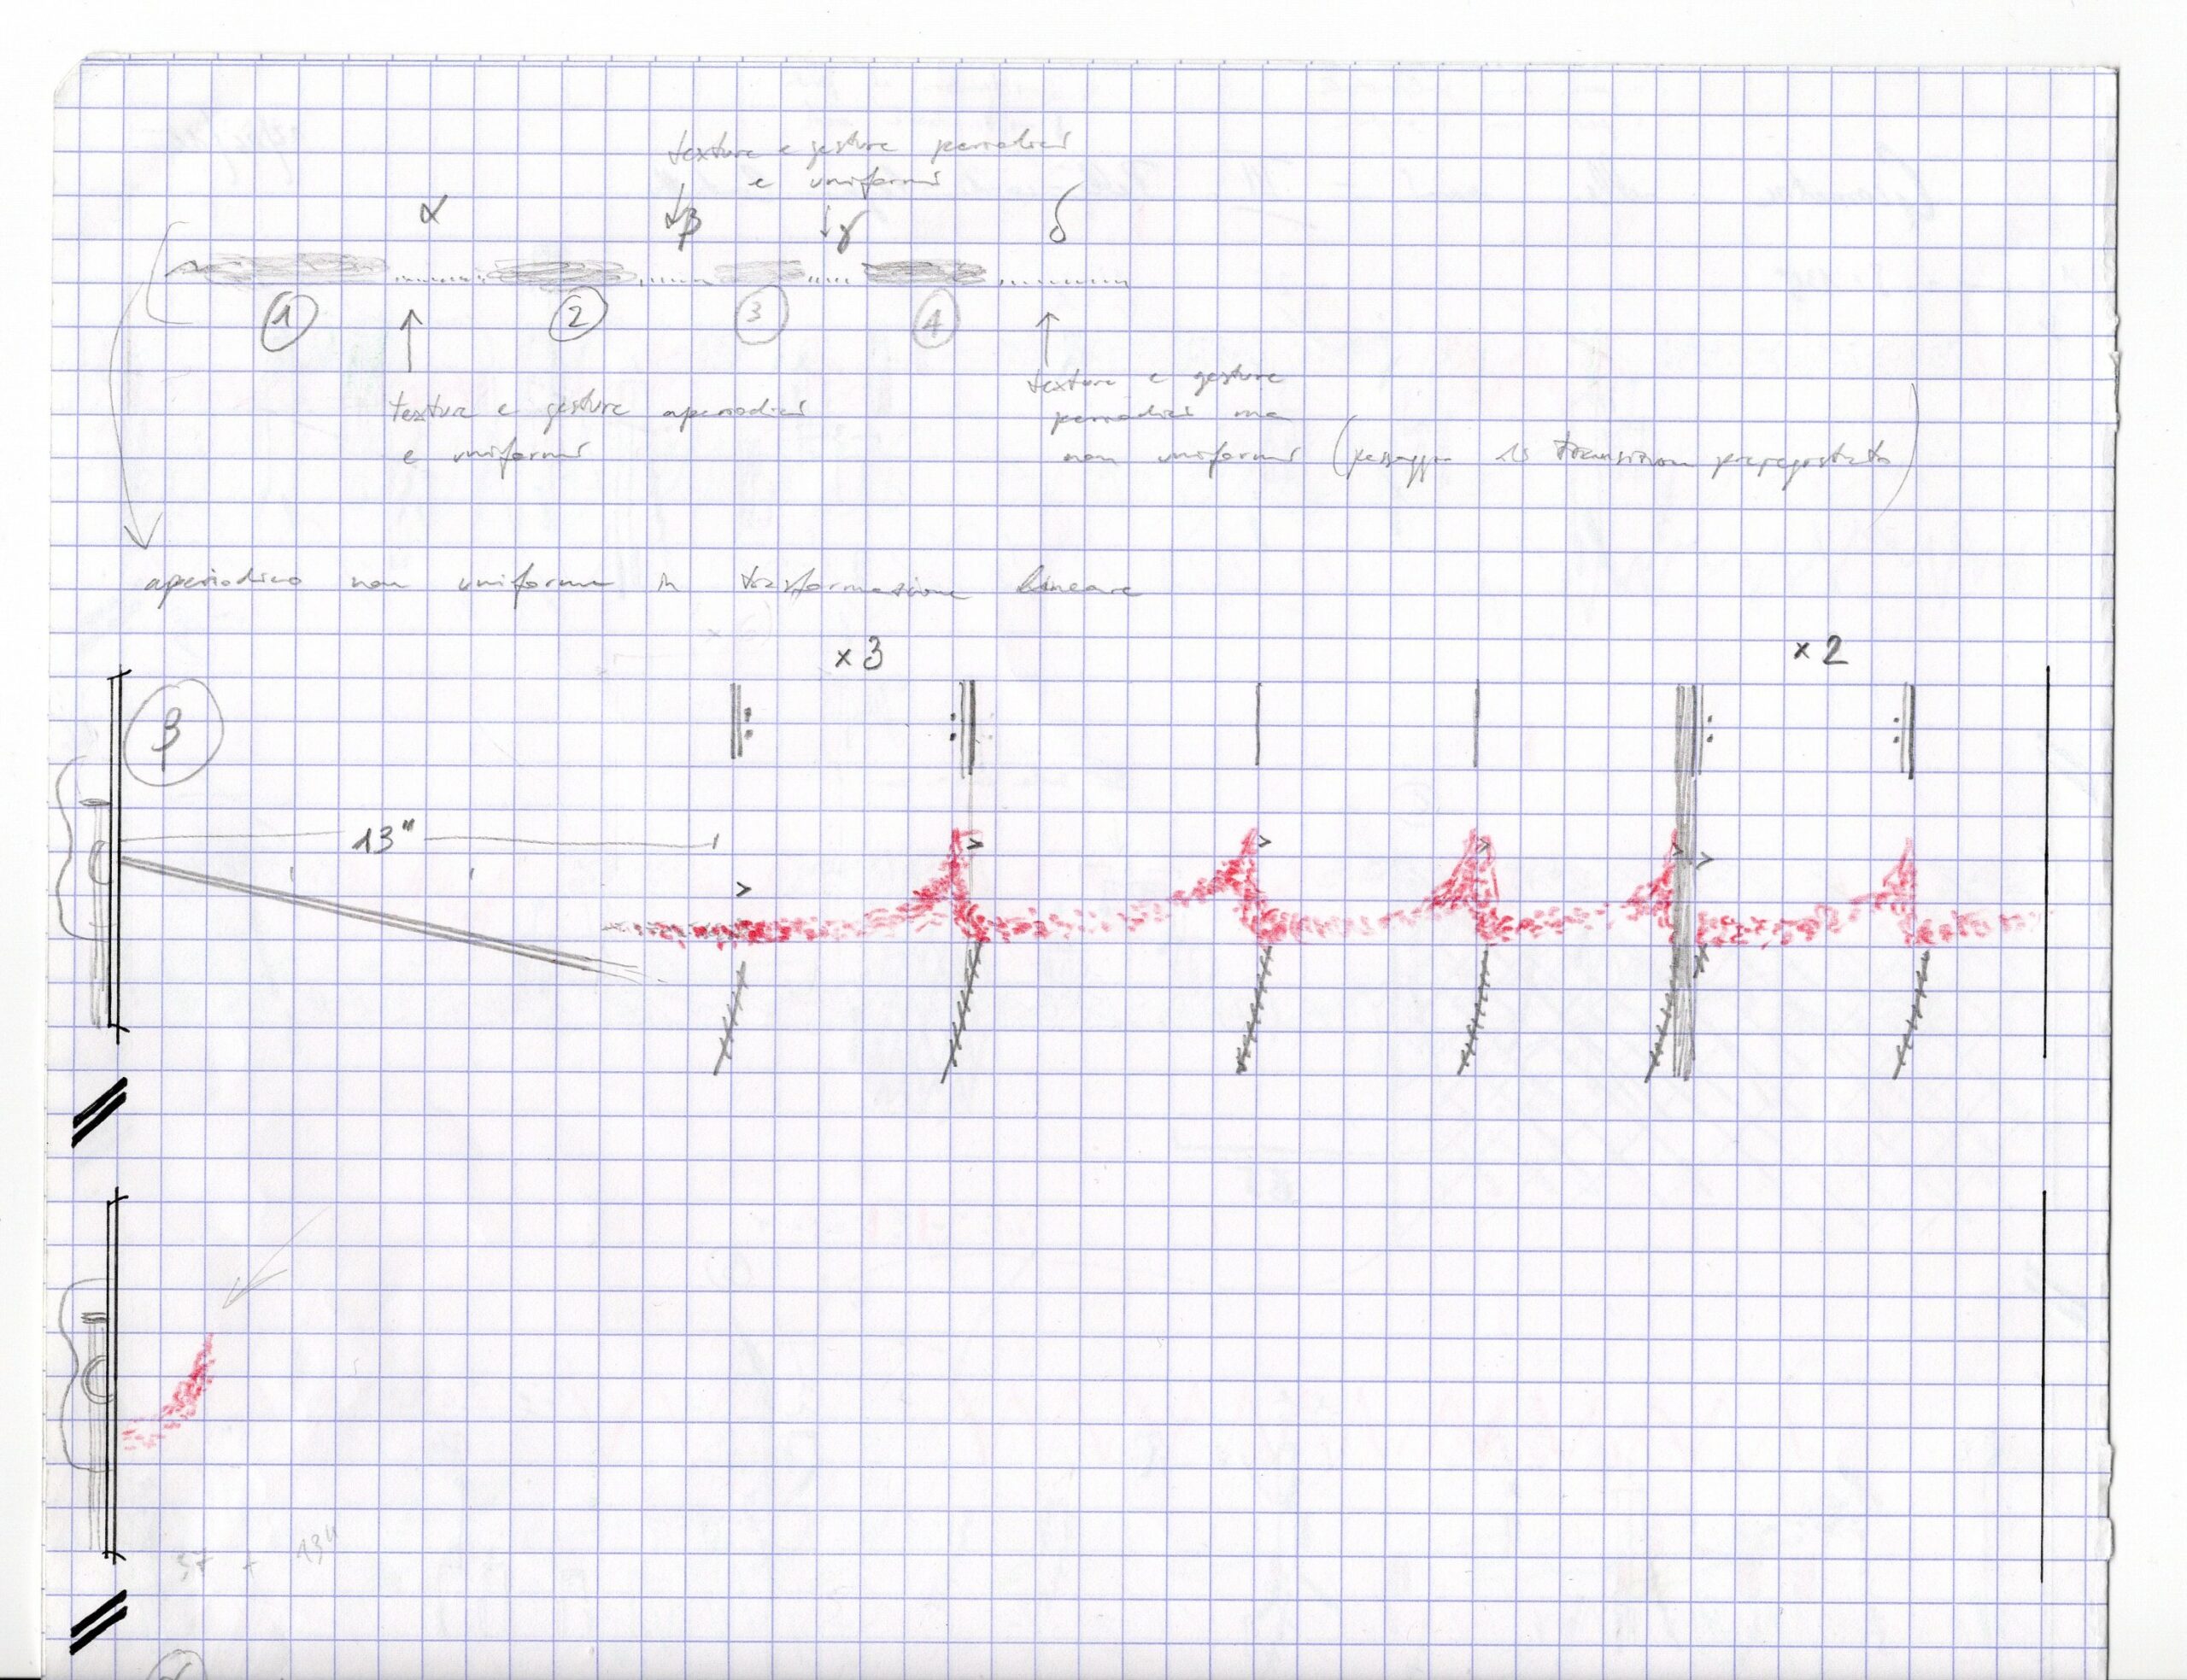 texture e gesture periodici
e uniformi
α β γ δ
1 2 3 4
texture e gesture aperiodici
e uniformi
texture e gesture
periodici ma
non uniformi (passaggio di transizione
aperiodico non uniforme in trasformazione lineare
x3 x2
β
13"
13"